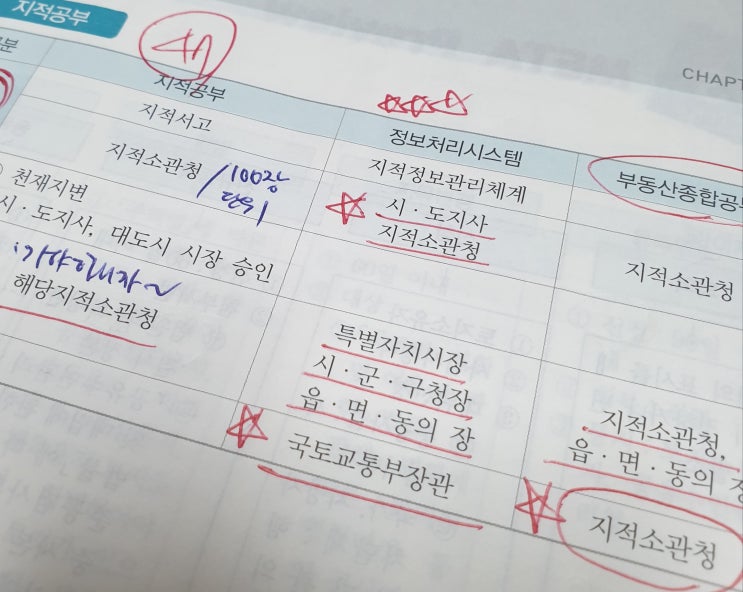 지적공부
CHAPT
지적공부
정보처리시스템
부동산종합공부
지적서고
지적정보관리체계
지적소관청
/100장
단위
시·도지사
지적소관청
지적소관청
천재지변
시·도지사, 대도시 시장 승인
해당지적소관청
특별자치시장
시·군·구청장
읍·면·동의 장
지적소관청,
읍·면·동의 장
국토교통부장관
지적소관청